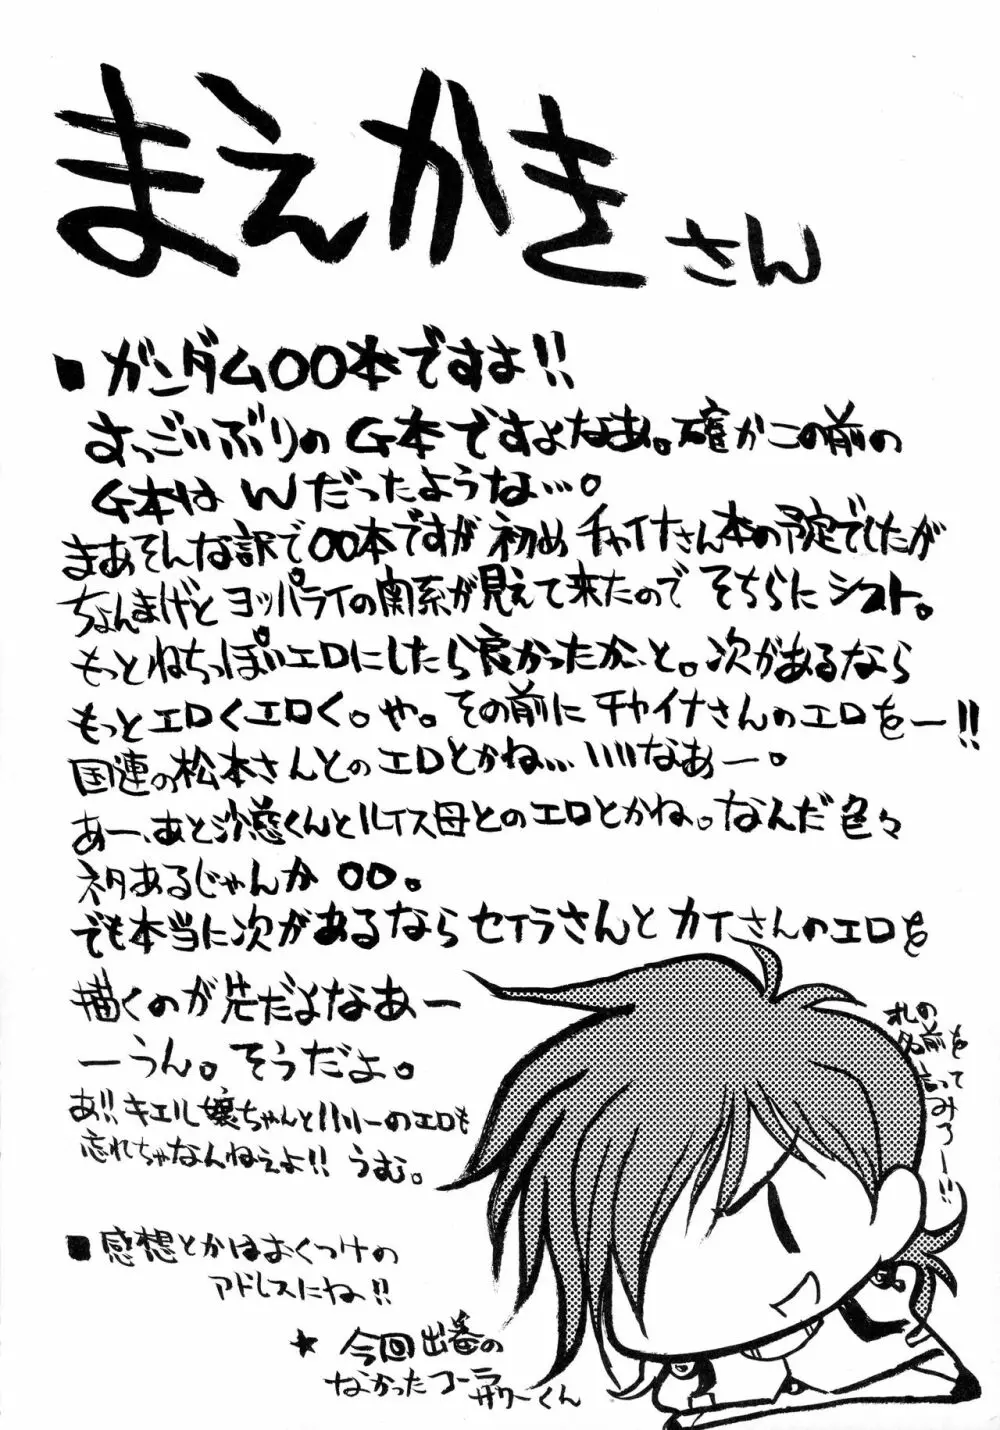 まえかきさん
■ガンダム00本ですよ!!
すっごいぶりのG本ですよなあ。確かこの前の
G本はWだったような…。
まあそんな訳で00本ですが初めチャイナさん本の予定でしたが
ちょんまげとヨッパライの関係が見えて来たのでそちらにシフト。
もっとねちっぽいエロにしたら良かったか、と。次があるなら
もっとエロくエロく。や。その前にチャイナさんのエロをー!!
国連の松本さんとのエロとかね…いいなあー。
あー、あと沙慈くんとルイス母とのエロとかね。なんだ色々
ネタあるじゃんか00。
でも本当に次があるならセイラさんとカイさんのエロを
描くのが先だよなあー
ーうん。そうだよ。
あ!!キエル嬢ちゃんとハリーのエロも
忘れちゃなんねぇよ!!うむ。
■感想とかはおくつけの
アドレスにね!!
★今回出番の
なかったコーラ
サワーくん
オレの
名前を
言って
みろー!!